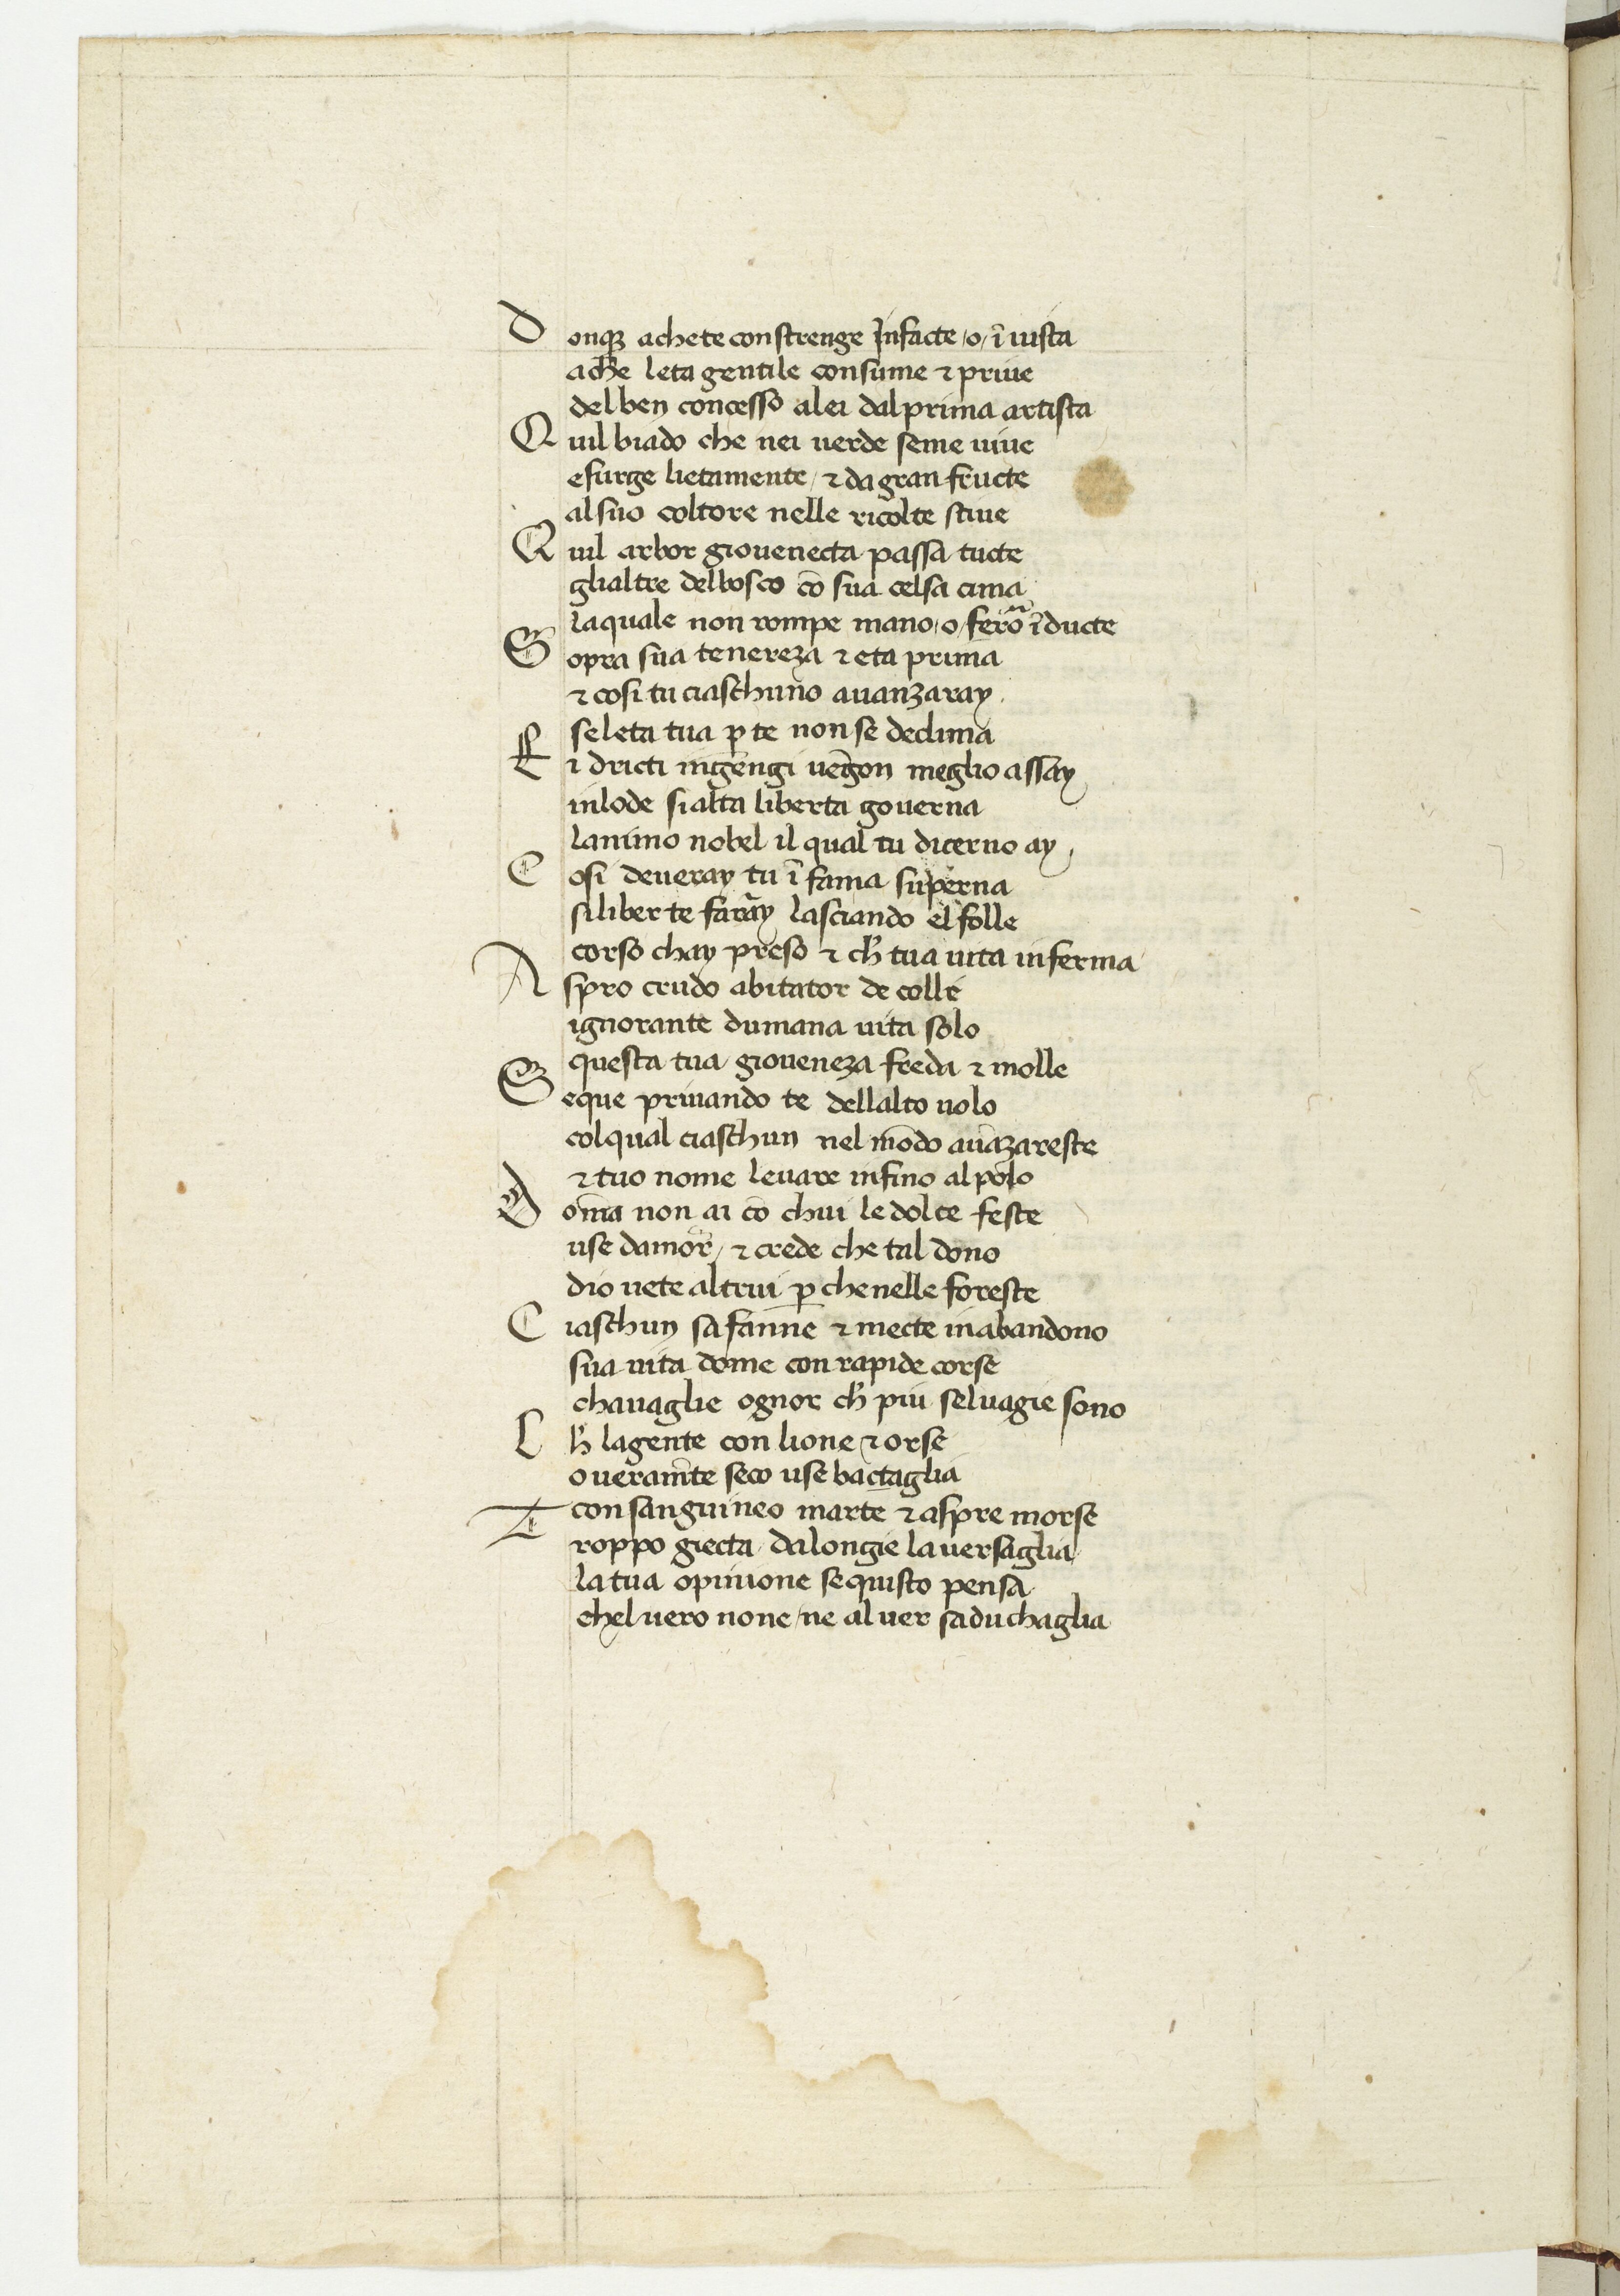 Donqꝫ achete constrenge Infacte /o/ ĩ uista
ache leta gentile consume ⁊ priue
del ben concesso alei dal prima artista
Quil biado che nei uerde seme uiue
e surge lietamente / ⁊ da gran fructe
al suo coltore nelle ricolte stiue
Quil arbor giouenecta passa tucte
glialtre del bosco cõ sua celsa cima
laquale non rompe mano /o/ fero ĩducte
Sopra sua tenereza ⁊ eta prima
⁊ cosi tu ciaschuno auanzaray
se leta tua ꝑ te non se declina
Ei dricti ingẽngi uẽgon meglio assay
inlode si alta liberta gouerna
lanimo nobel il qual tu dicerno ay
Cosi deueray tu ĩ fama superna
si liber te faray lasciando el folle
corso chay preso ⁊ cħ tua uita inferma
Aspro crudo abitator de colle
ignorante dumana uita solo
questa tua gioueneza freda ⁊ molle
Seque priuando te dellalto uolo
col qual ciaschun nel mõdo auãzareste
⁊ tuo nome leuare infino al polo
Dom̃a non ai cõ chui le dolce feste
use damor̃ / ⁊ crede che tal dono
dio uete altrui ꝑ che nelle foreste
Ciaschun safanne ⁊ mecte in abandono
sua uita dome con rapide corse
chauaglie ognor cħ piu seluagie sono
Cħ lagente con lione ⁊ orse
o uueram̃te seco use bactaglia
con sanguineo marte ⁊ aspre morse
Troppo giecta da longie la uersaglia
la tua opinione se quisto pensa
chel uero none / ne al uer sa du chaglia